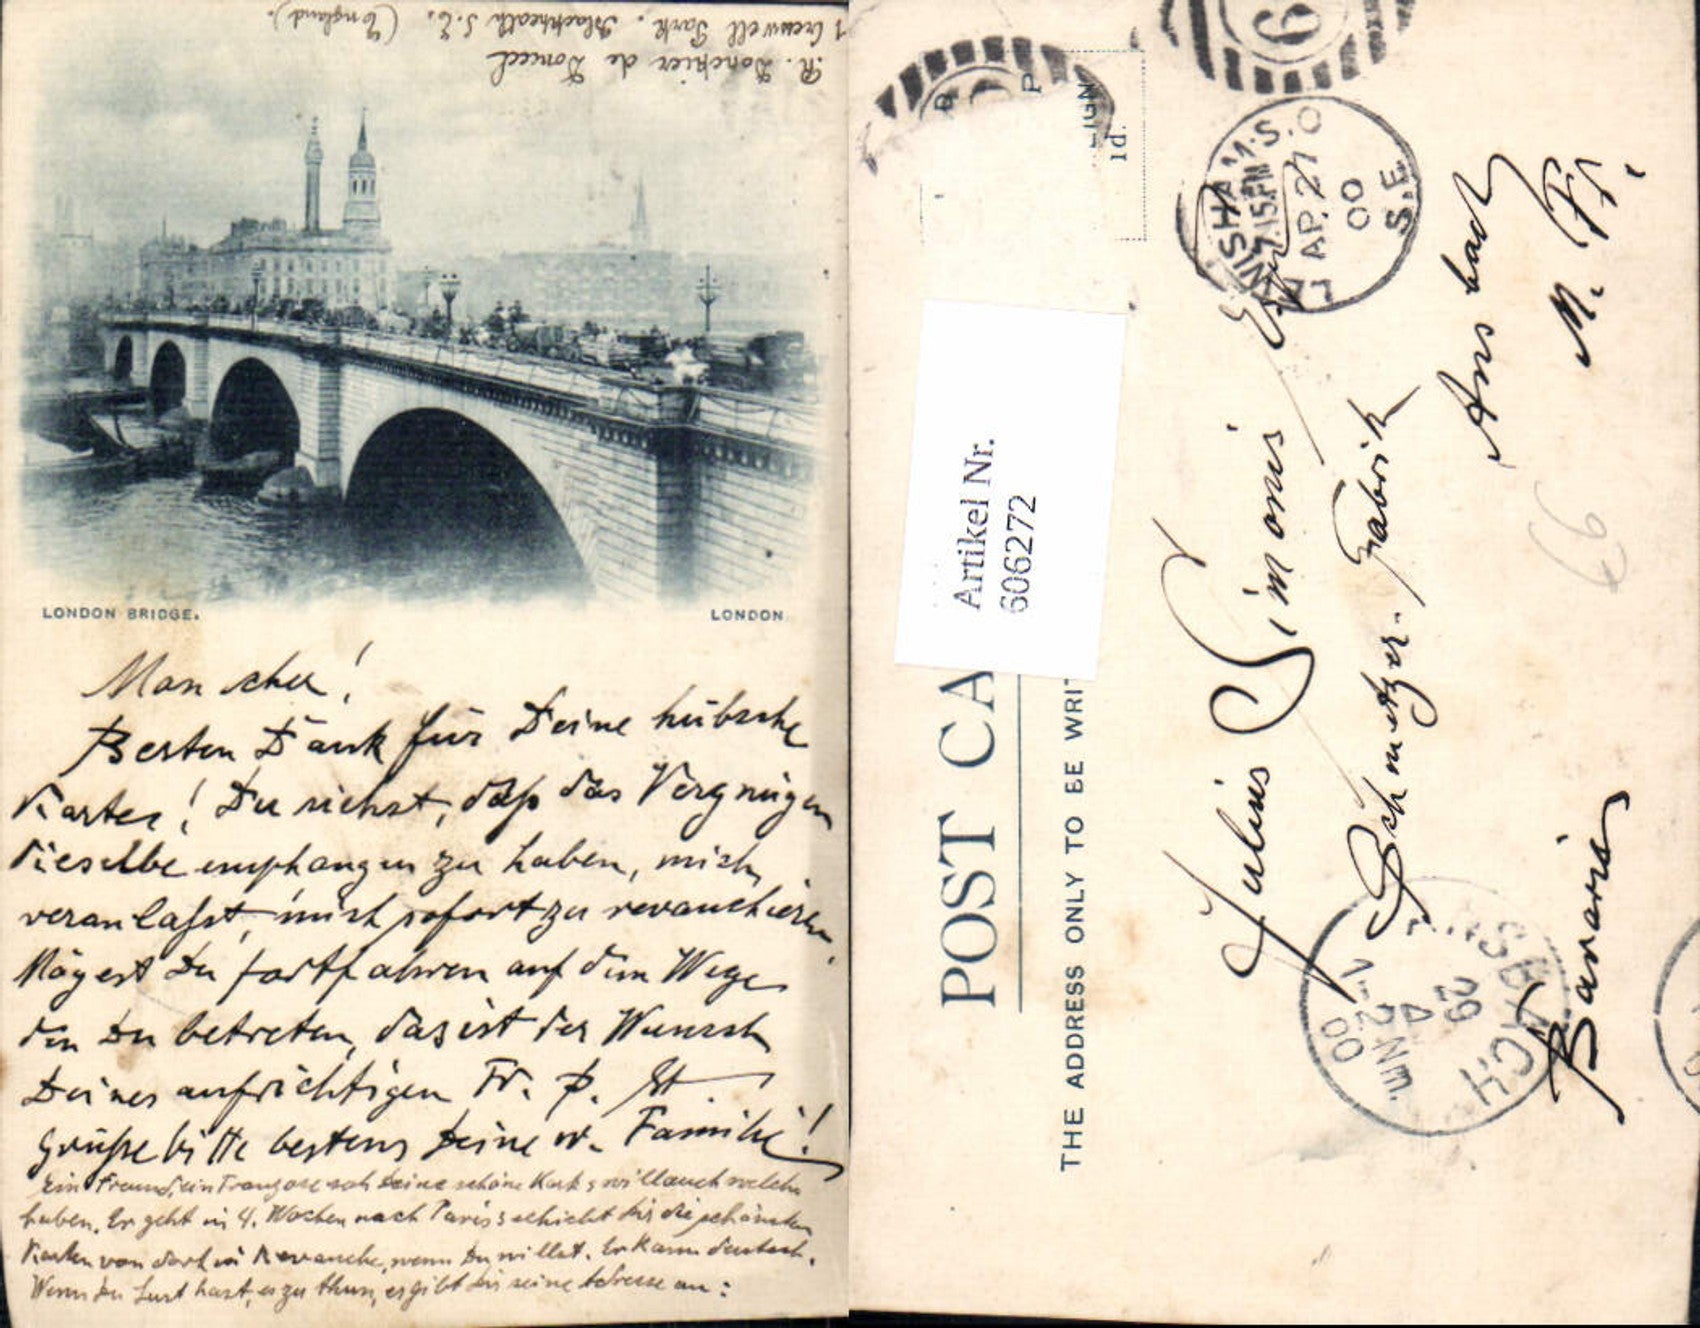 R. Donckier de Donceel
1 Cresswell Park. Blackheath S.E. (England).
LONDON BRIDGE.
LONDON
Mon cher!
Besten Dank für Deine hübsche
Karten! Du siehst, daß das Vergnügen
dieselbe empfangen zu haben, mich
veranlaßt, mich sofort zu revanchieren.
Mögest Du fortfahren auf dem Wege
den Du betreten, das ist der Wunsch
Deines aufrichtigen Fr. P. St.
Grüße bitte bestens Deine w. Familie!
Ein Freund, ein Franzose sah Deine schöne Karte & will auch welche
haben. Er geht in 4. Wochen nach Paris & schickt dir die schönsten
Karten von dort in Revanche, wenn Du willst. Er kann deutsch.
Wenn Du Lust hast, es zu thun, er gibt dir seine Adresse an:
POST CA
THE ADDRESS ONLY TO BE WRIT
Artikel Nr.
606272
1d.
7.15.PM
AP.27
00
S.E.
Julius Simonis
Schmetzer. Fabrik
Ansbach
M. Fr.
Bavaria
ANSBACH
29
4
1-2 Nm.
00